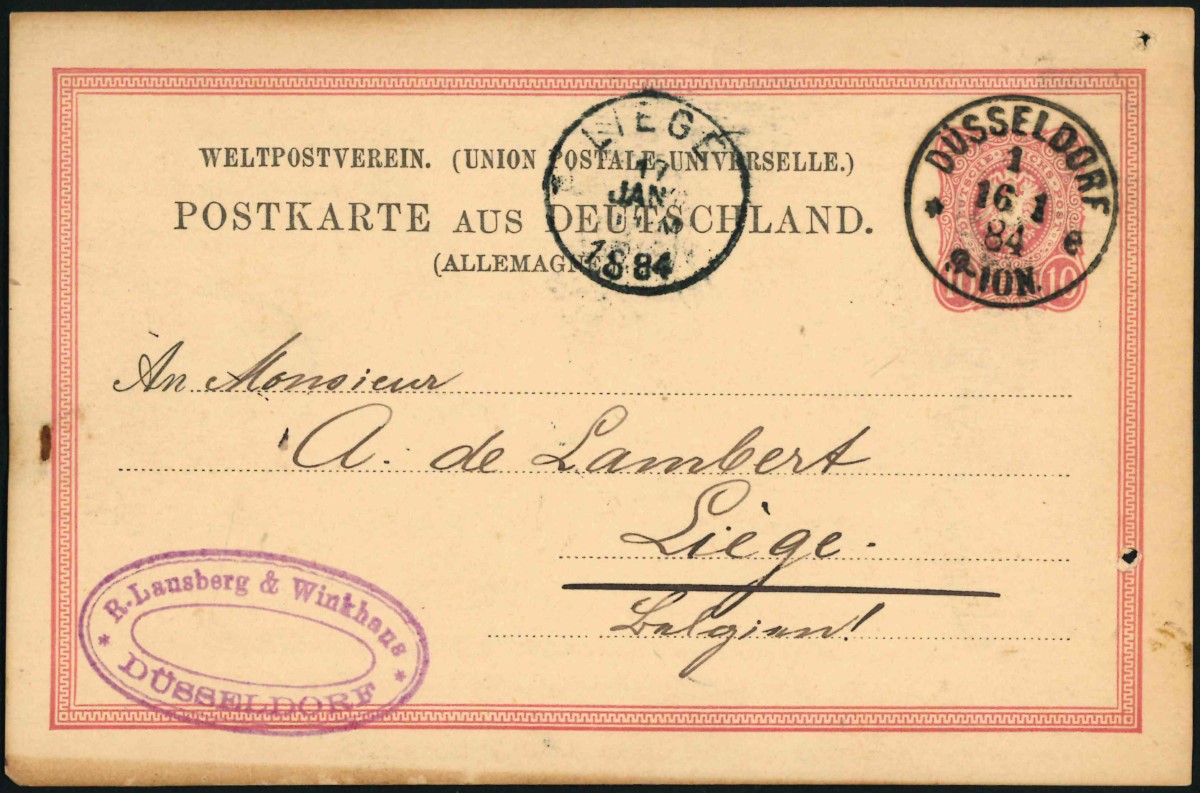 WELTPOSTVEREIN. (UNION POSTALE UNIVERSELLE.)
POSTKARTE AUS DEUTSCHLAND.
(ALLEMAGNE
LIEGE
17
JAN
1884
DÜSSELDORF
1
16 1
84 e
9-10N.
10 10
An Monsieur
A. de Lambert
Liège.
Belgien!
R. Lausberg & Winkhaus
* DÜSSELDORF *